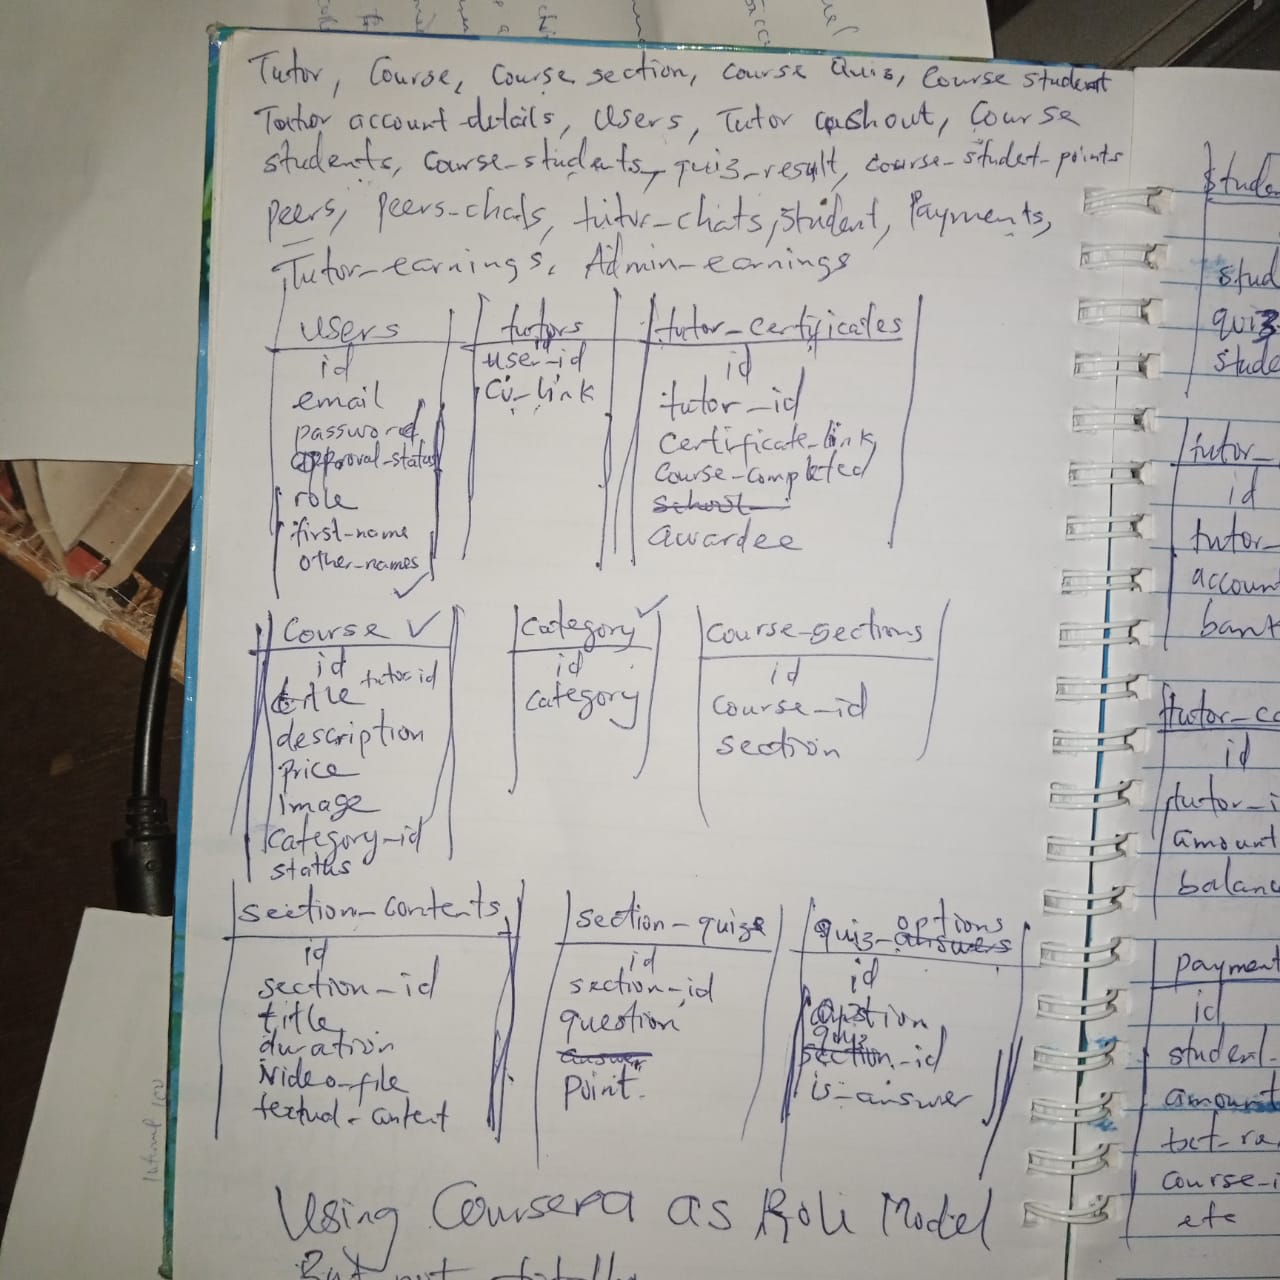 Tutor, Course, Course section, course Quiz, Course student
Tutor account details, Users, Tutor cashout, Course
students, course-students, quiz-result, course-student-points
peers, peers-chats, tutor-chats, student, Payments,
Tutor-earnings, Admin-earnings
users
id
email
password
approval-status
role
first-name
other-names
tutors
id
user-id
CV-link
tutor-certificates
id
tutor-id
certificate-link
course-completed
school
awardee
Course
id
title tutor id
description
price
image
category-id
status
category
id
category
course-sections
id
course-id
section
section-contents
id
section-id
title
duration
video-file
textual-content
section-quizs
id
section-id
question
answer
point.
options
quiz-answers
id
option
quiz
section-id
is-answer
Using Coursera as Role Model
But not totally
stud
quiz
stude
tutor-
id
tutor-
account
bank
tutor-ca
id
tutor-i
amount
balanc
payment
id
student-
amount
course-i
etc